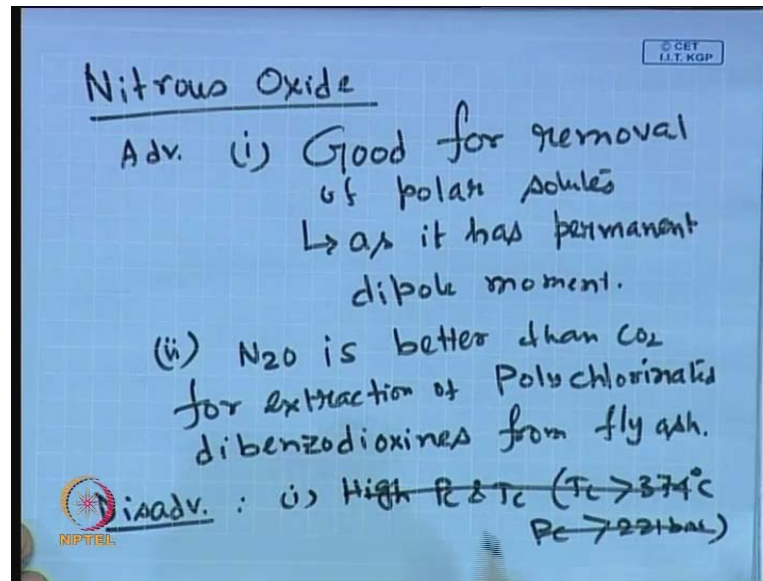 © CET
I.I.T. KGP
Nitrous Oxide
Adv. (i) Good for removal
of polar solutes
↳ as it has permanent
dipole moment.
(ii) N2O is better than CO2
for extraction of Polychlorinated
dibenzodioxines from fly ash.
Disadv. : (i) High Pc & Tc (Tc > 374°C
Pc > 221 bar)
NPTEL